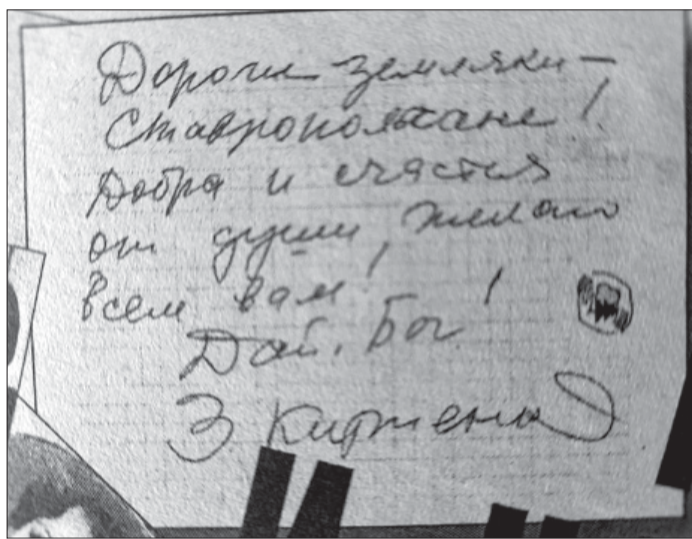 Дорогие земляки –
Ставропольчане!
Добра и счастья
от души желаю
всем вам!
Дай, Бог!
З. Киржена